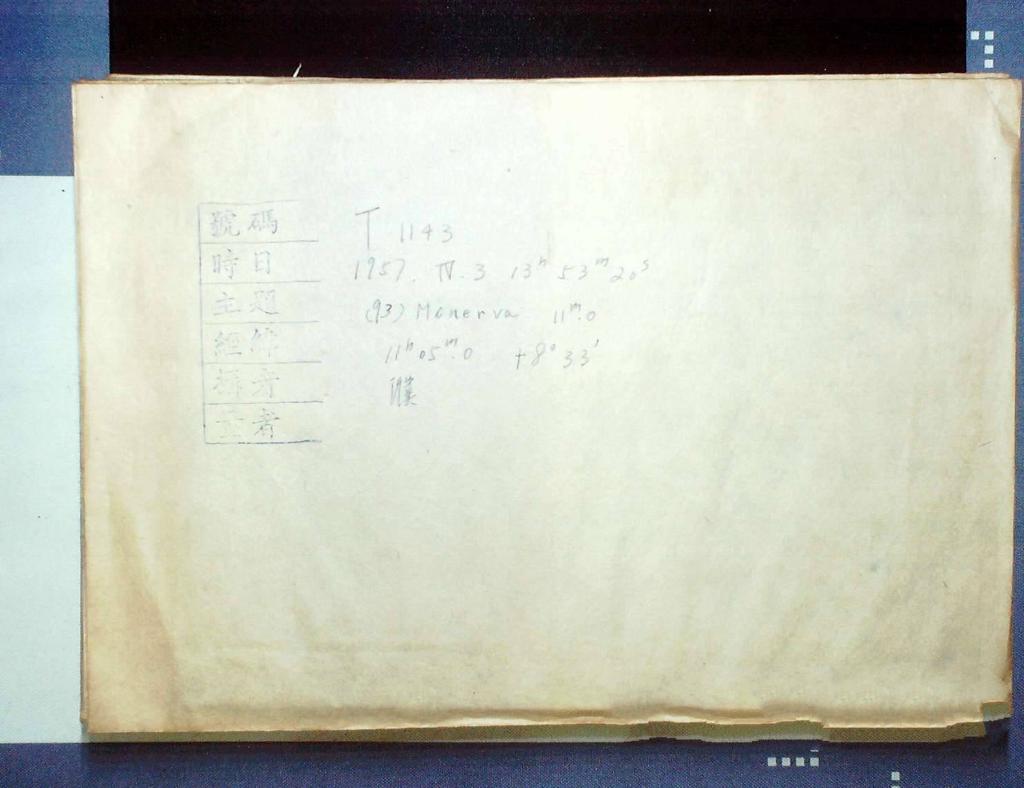 號碼 T 1143
時日 1957. IV. 3 13ʰ 53ᵐ 20ˢ
主題 (93) Minerva 11ᵐ.0
經緯 11ʰ 05ᵐ.0 +8° 33'
者
者